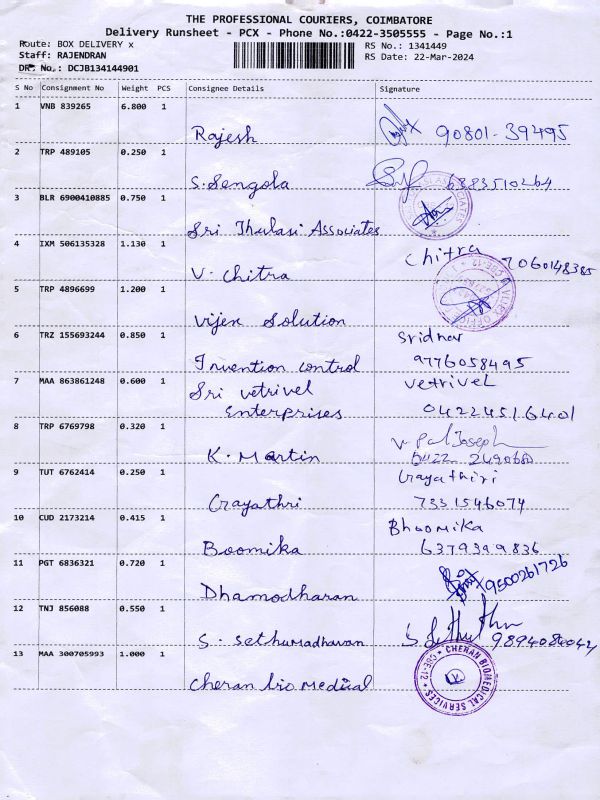 THE PROFESSIONAL COURIERS, COIMBATORE
Delivery Runsheet - PCX - Phone No.:0422-3505555 - Page No.:1
Route: BOX DELIVERY x
RS No.: 1341449
Staff: RAJENDRAN
RS Date: 22-Mar-2024
DRS No.: DCJB134144901
S No Consignment No Weight PCS Consignee Details Signature
1 VNB 839265 6.800 1
Rajesh 90801-39495
2 TRP 489105 0.250 1
S. Sengola 6383510264
3 BLR 6900410885 0.750 1
Sri Thulasi Associates
4 IXM 506135328 1.130 1
V. Chitra Chitra 7060148385
5 TRP 4896699 1.200 1
Vijen Solution
6 TRZ 155693244 0.850 1 Sridhar
Invention control 9776058495
7 MAA 863861248 0.600 1 Vetrivel
Sri vetrivel
Enterprises 04224516401
8 TRP 6769798 0.320 1 Joseph
K. Martin 2490680
9 TUT 6762414 0.250 1 Gayathiri
Gayathri 7331546074
10 CUD 2173214 0.415 1 Bhoomika
Boomika 6379399836
11 PGT 6836321 0.720 1
Dhamodharan 9500261726
12 TNJ 856088 0.550 1
S. Sethumadhavan 9894084042
13 MAA 300705993 1.000 1
Cheran bio Medical
CHERAN BIOMEDICAL SERVICES CBE-12